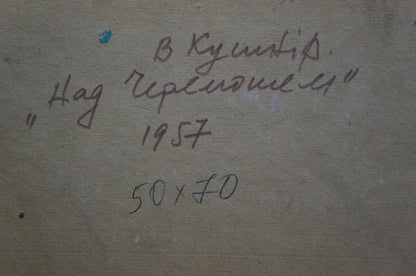 В Кушнір.
„Над Черемошем"
1957
50х70